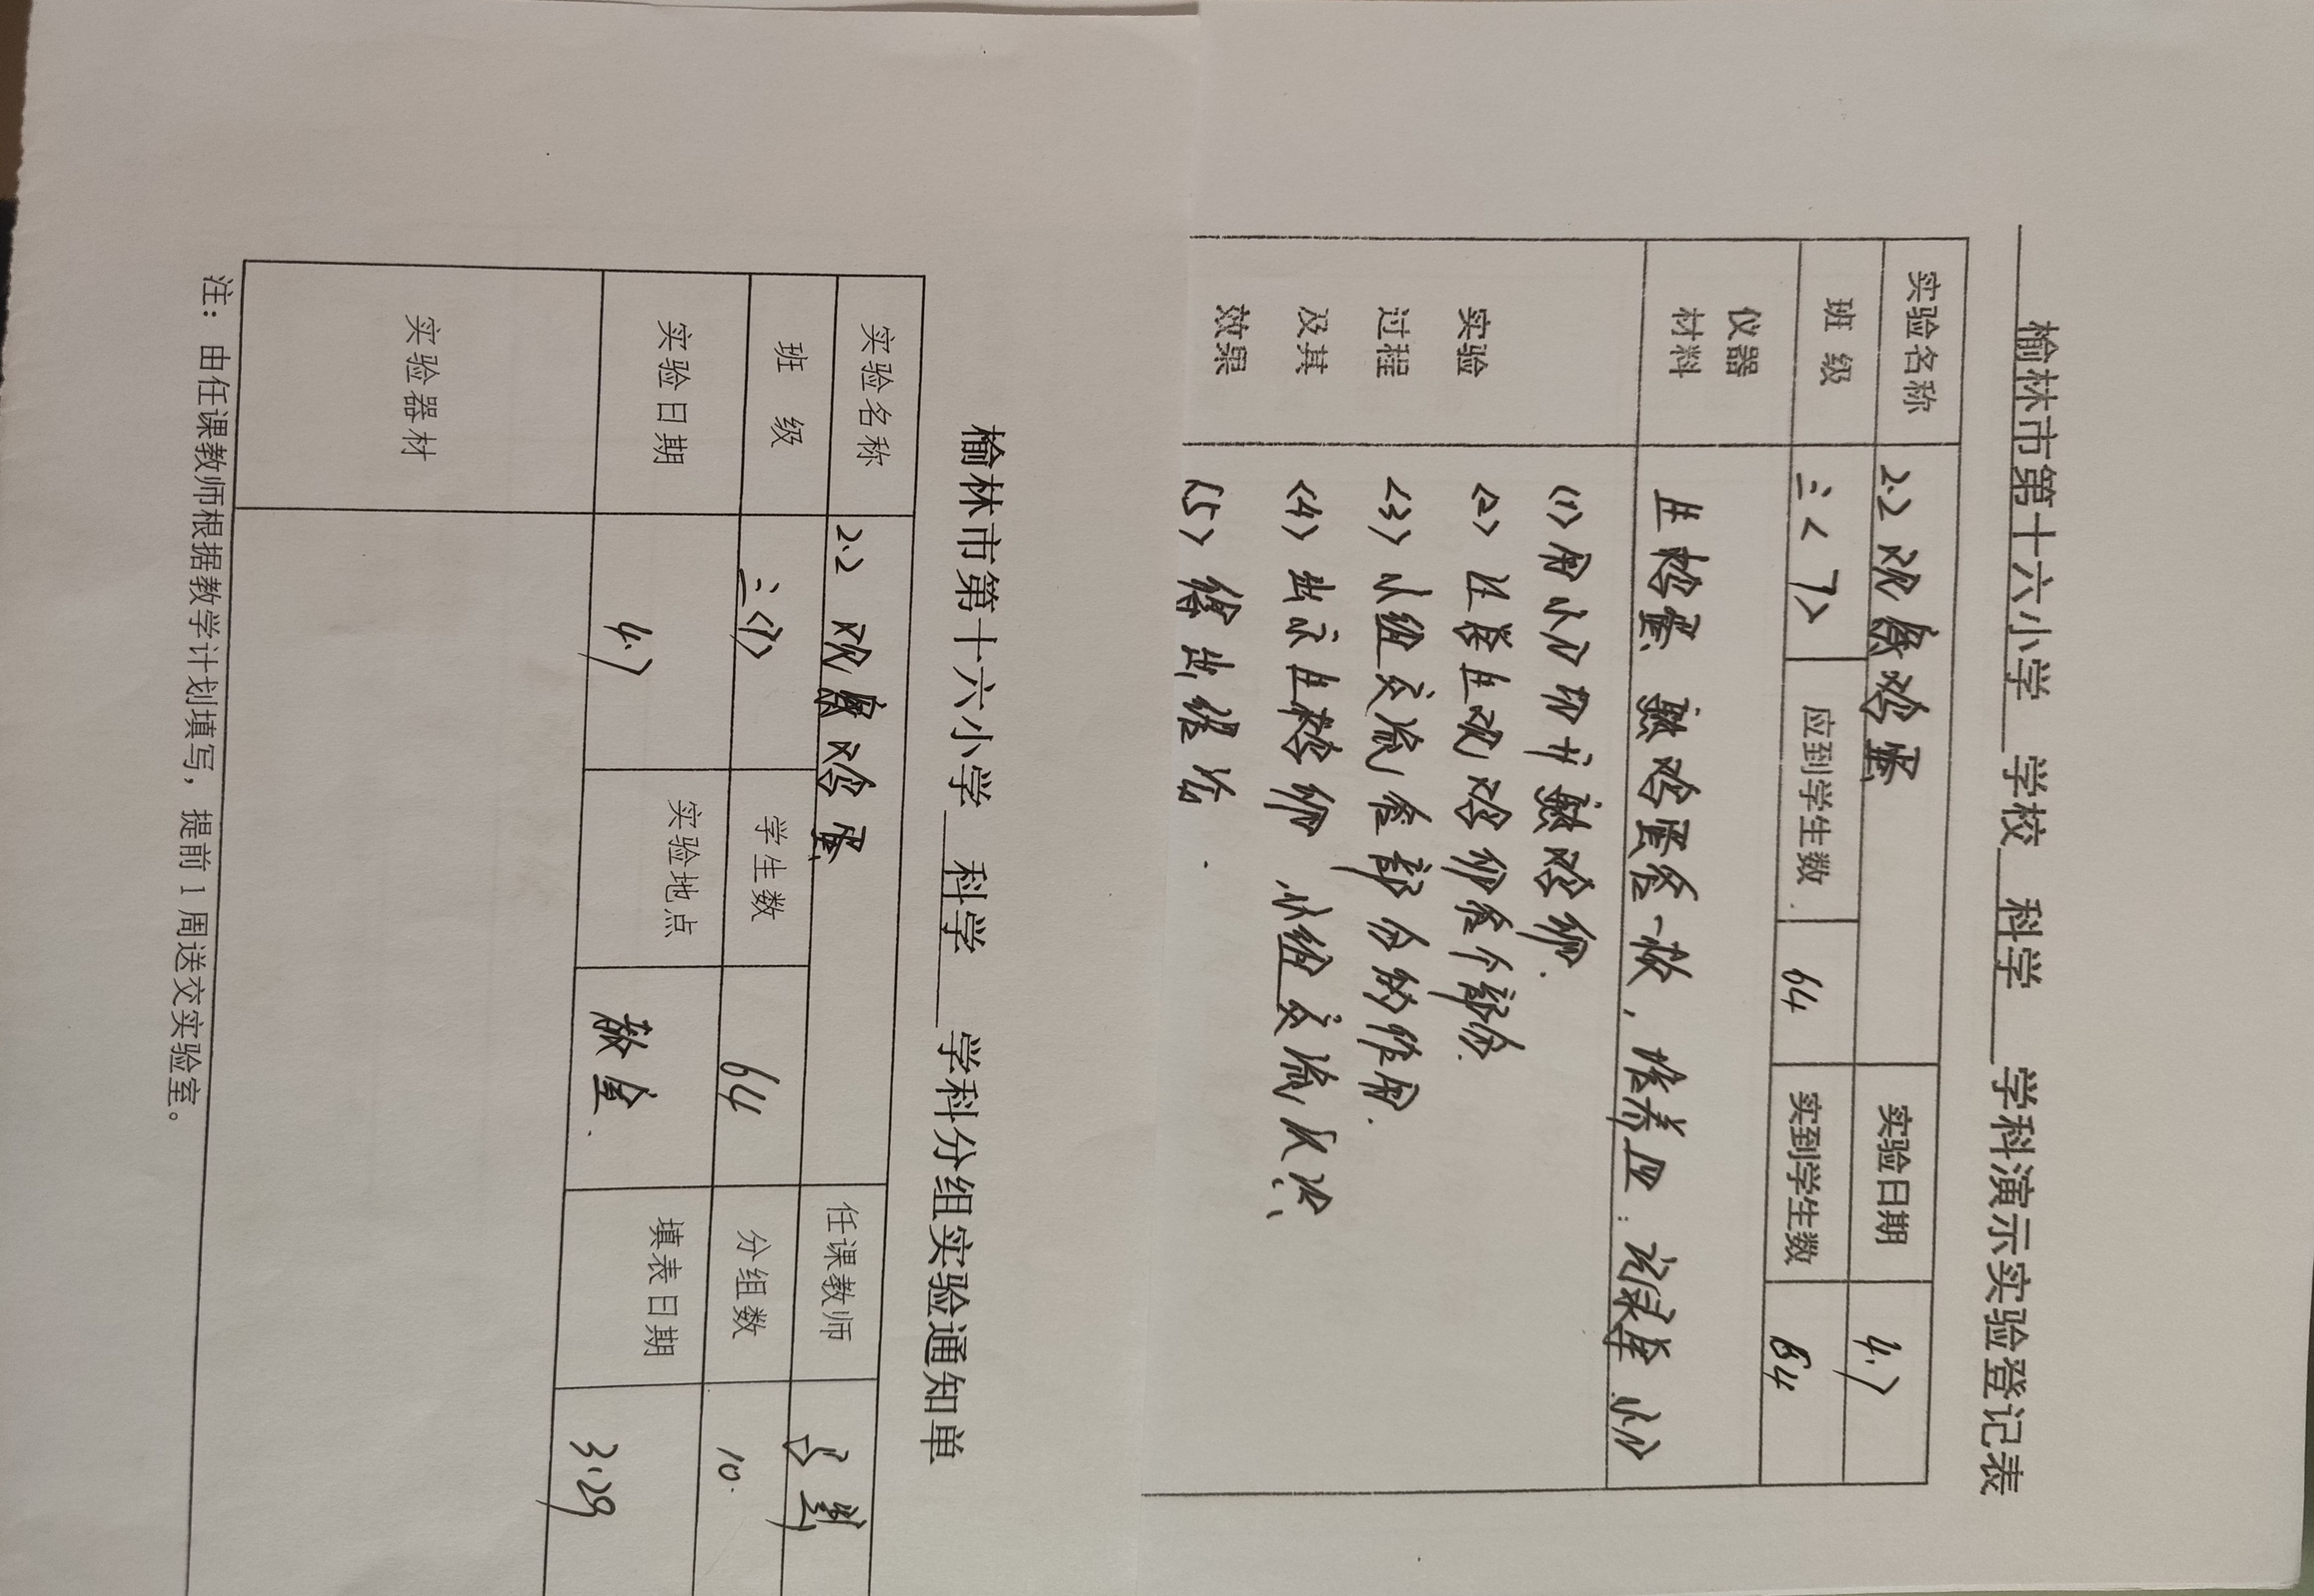 榆林市第十六小学 学校 科学 学科演示实验登记表
实验名称 2.2 观察鸡蛋 实验日期 4.7
班 级 三<7> 应到学生数 64 实到学生数 64
仪器
材料 生鸡蛋 熟鸡蛋各一枚, 培养皿: 记录单 小刀
实验
过程
及其
效果
(1) 用小刀切开熟鸡卵.
<2> 让学生观鸡卵各个部份.
<3> 小组交流各部分的作用.
<4> 出示生鸡卵 小组交流
(5) 得出结论.
榆林市第十六小学 科学 学科分组实验通知单
实验名称 2.2 观察鸡蛋 任课教师
班 级 三<7> 学生数 64 分组数 10.
实验日期 4.7 实验地点 教室. 填表日期 3.29
实验器材
注：由任课教师根据教学计划填写，提前1周送交实验室。